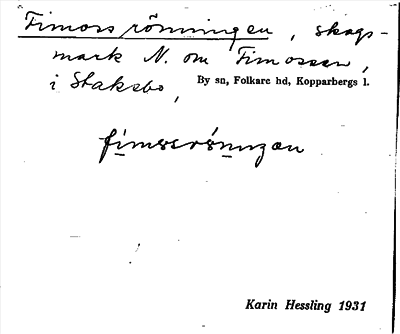 Fimossrönningen, skogs-
mark N. om Fimossen,
i Stakebo,
By sn, Folkare hd, Kopparbergs l.
Karin Hessling 1931